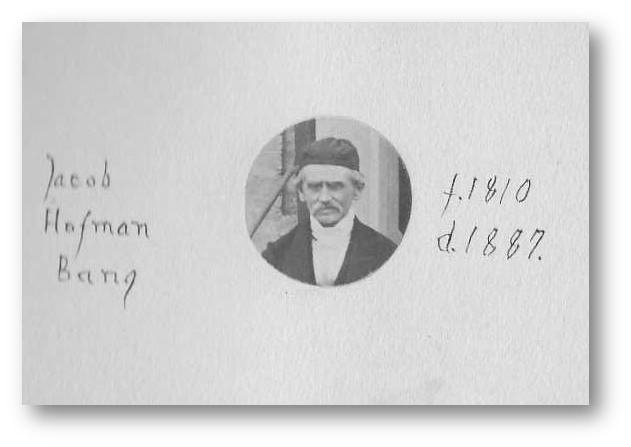 Jacob
Hofman
Bang
f. 1810
d. 1887.